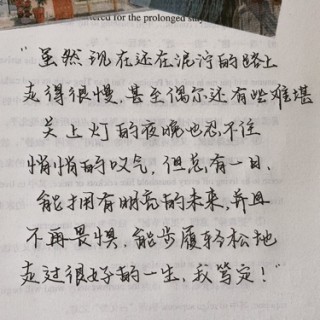 ered for the prolonged
"虽然现在还在泥泞的路上
走得很慢，甚至偶尔还有些难堪
关上灯的夜晚也忍不住
悄悄的叹气，但总有一日，
能拥有明亮的未来，并且
不再畏惧，能步履轻松地
走过很好的一生，我笃定！"